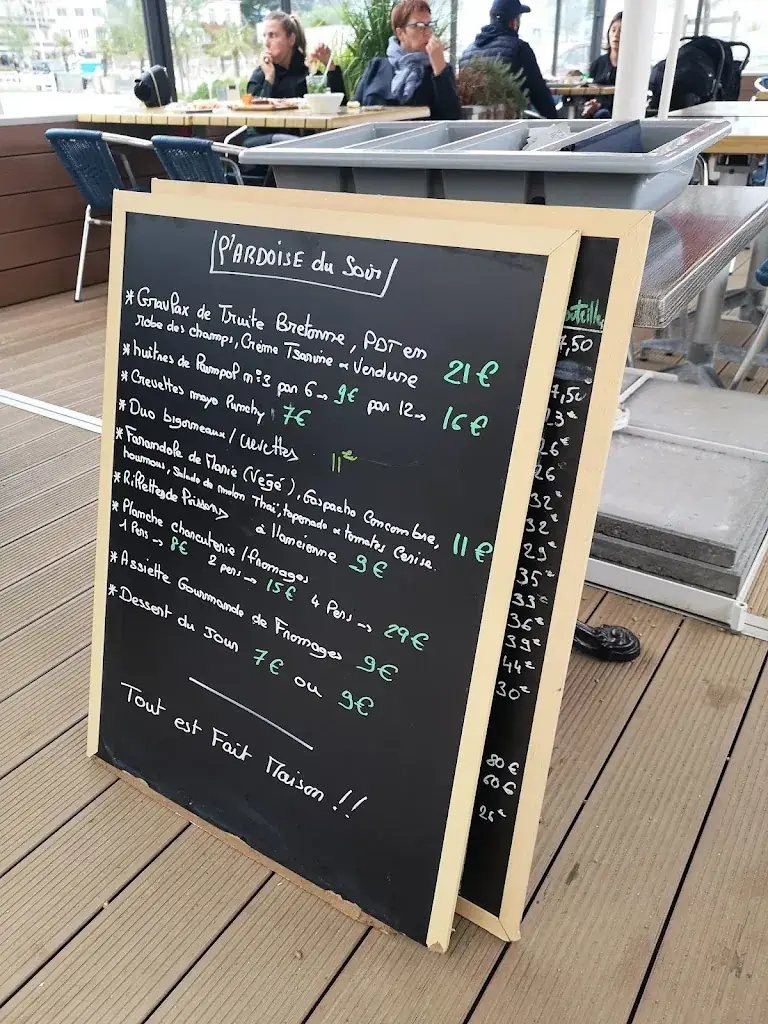 L'ARDOISE du Soir
* Gravlax de Truite Bretonne, PDT en
robe des champs, Crème Tsarine & Verdure 21€
* huitres de Paimpol n°3 par 6 → 9€ par 12 → 16€
* Crevettes mayo Punchy 7€
* Duo bigorneaux / Crevettes 11€
* Farandole de Marie (Végé), Gaspacho Concombre,
houmous, Salade de melon Thaï, tapenade & tomates Cerise. 11€
* Rillettes de Poissons à l'ancienne 9€
* Planche charcuterie / fromages
1 Pers → 8€ 2 pers → 15€ 4 Pers → 29€
* Assiette Gourmande de Fromages 9€
* Dessert du Jour 7€ ou 9€
Tout est Fait Maison !!
outeilles
7,50
7,50
23€
26€
26
32€
32€
29€
35€
33€
36€
39€
44€
30€
80€
60€
26€